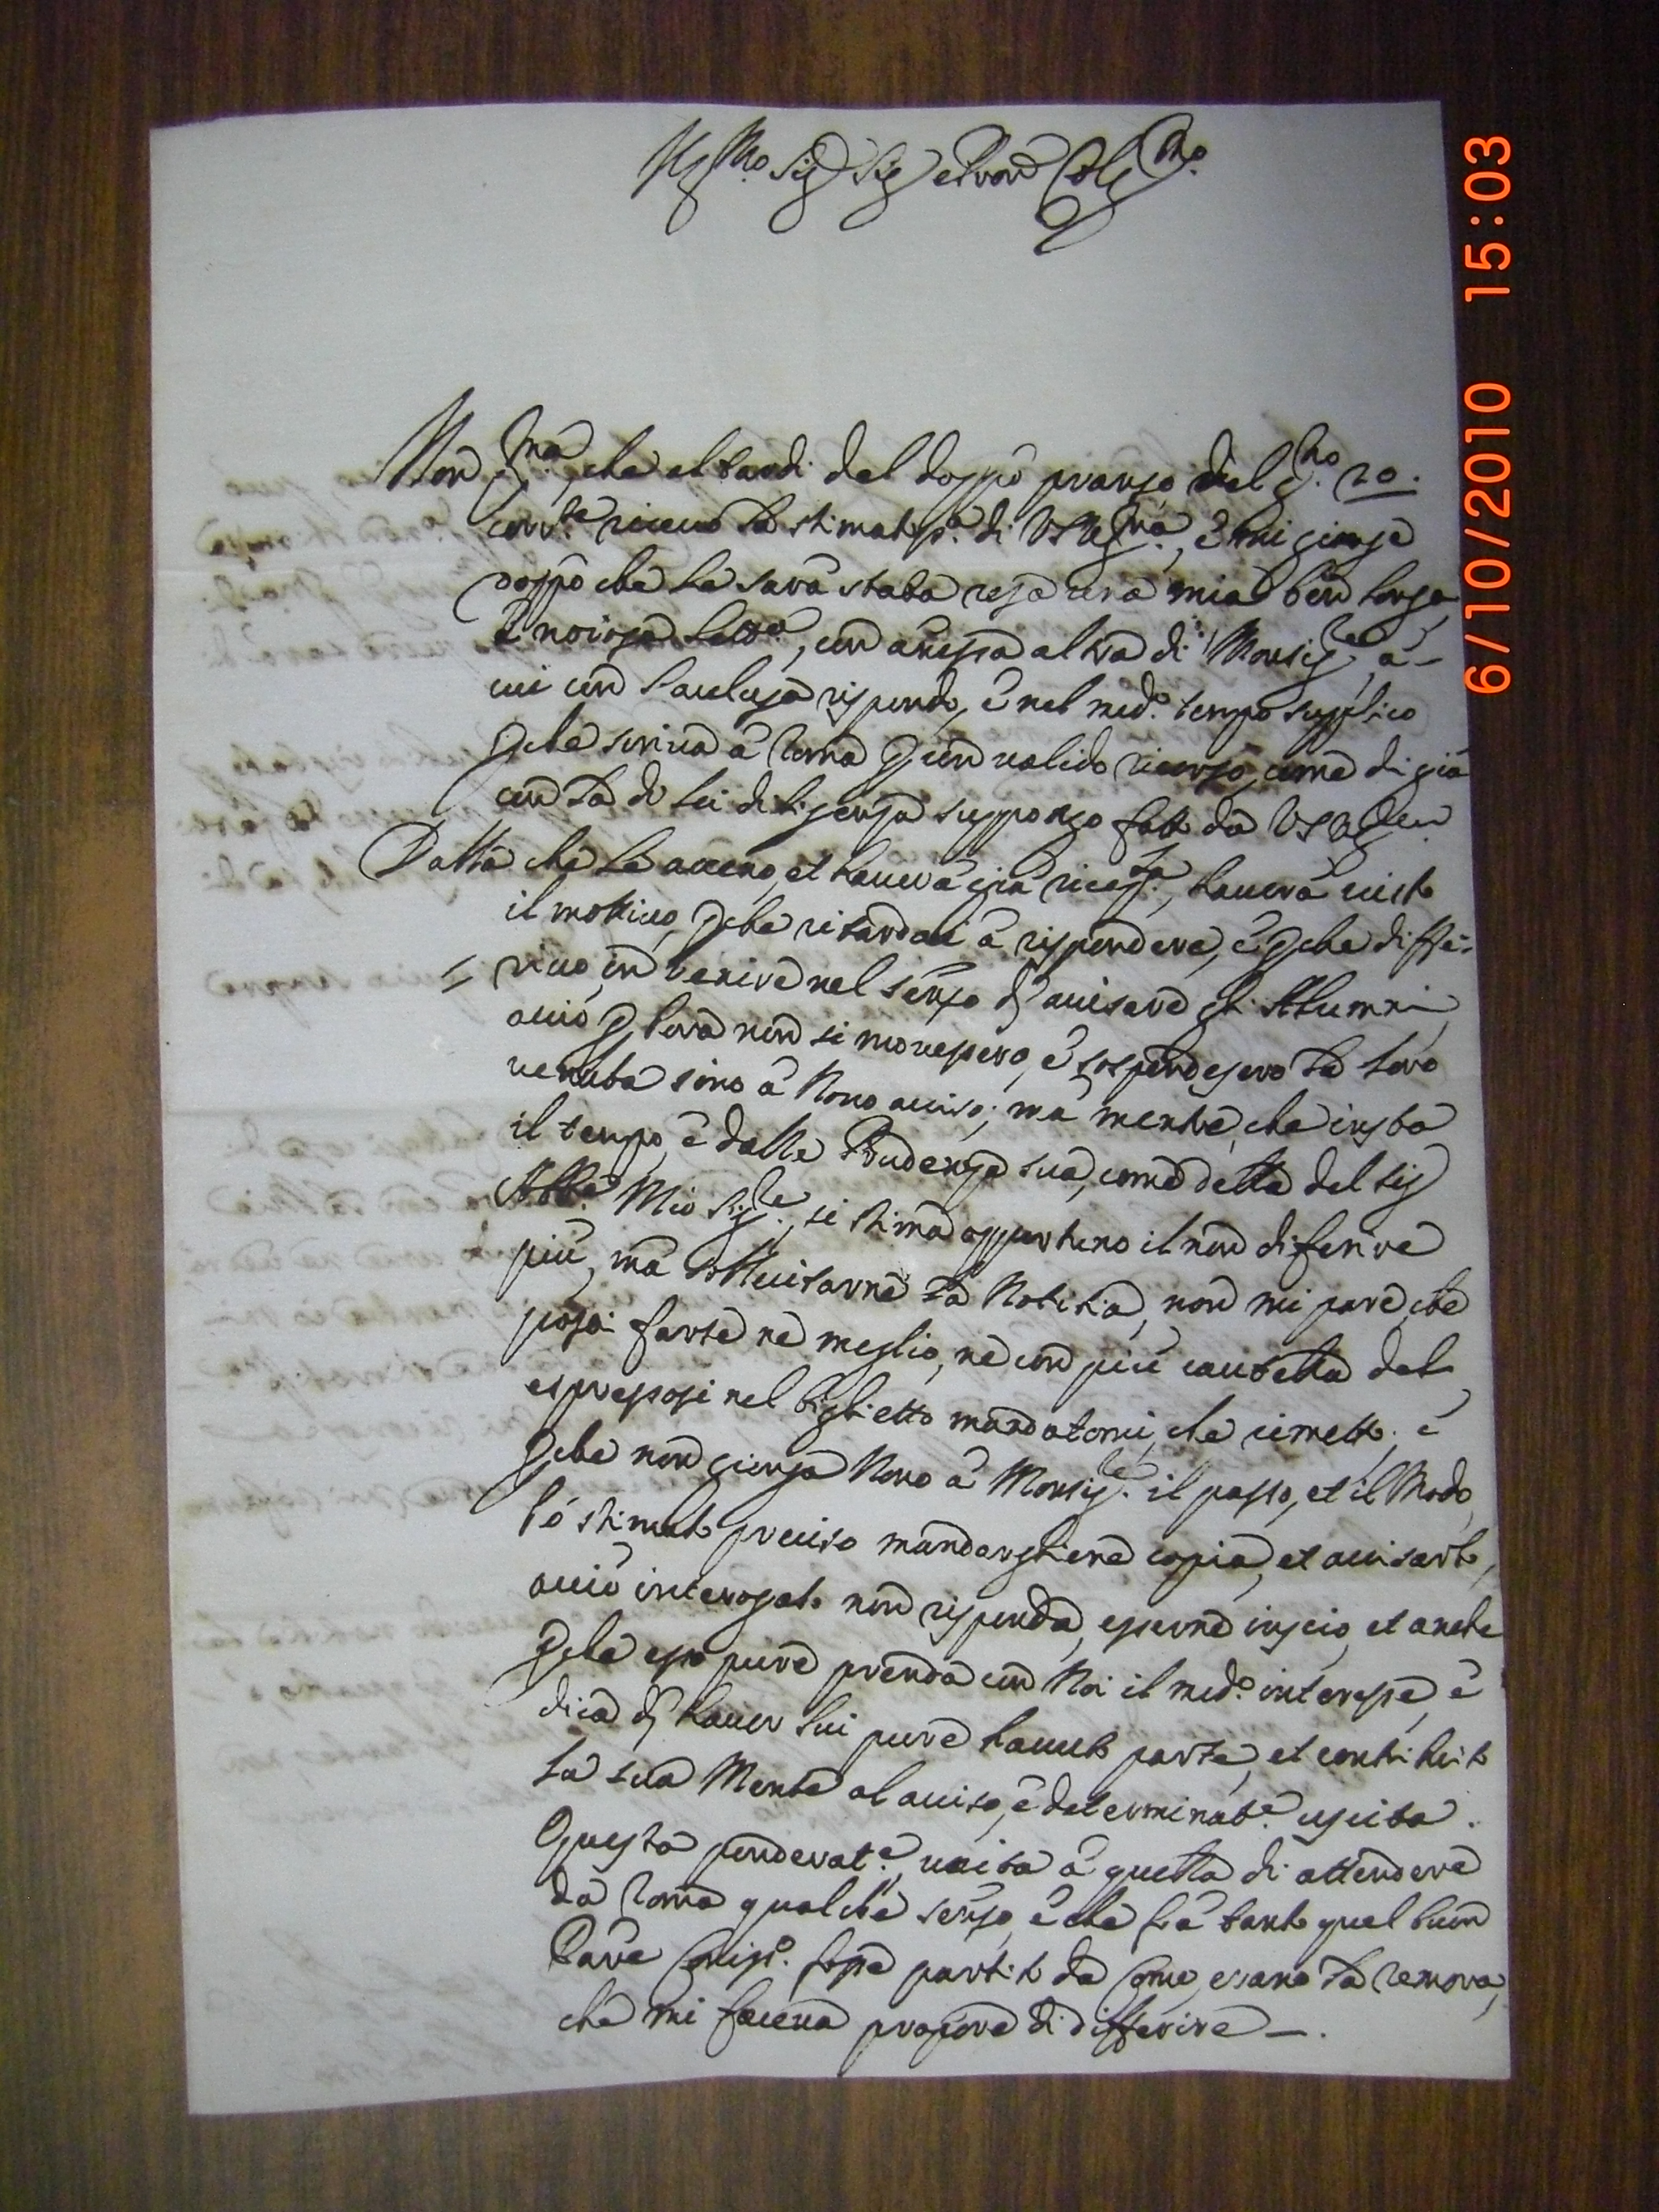 Ill.mo Sig.r Sig.r e Pron Col.mo
Non p.ma, che al tardi del doppo pranso del g.no 20.
corr.te riceuo la stimatis.a di VS Ill.ma, e mi giunse
doppo che le sarà stata resa una mia ben longa,
e noiosa lett.a, con anessa altra di Monsig.re, a-
cui con l'aclusa rispondo, e nel med.o tempo suplico
perche scriua a Roma per un ualido ricorso, come di già
con la di lei diligenza suppongo fatto da VS Ill.ma
Dalla che le aceno, et hauerà già riceu.ta, hauerà uisto
il mottiuo, perche ritardai a rispondere, e perche diffe-
riuo, in venire nel senso di auisare gli Allumni
acciò per hora non si mouessero, e sospendessero la loro
uenuta sino a Nouo auiso; ma mentre, che insta
il tempo, e dalla Prudenza sua, come della del Sig.r
Abb.e Mio Sig.re, si stima oppurtuno il non diferire
più, ma solleuitarne la Notitia, non mi pare, che
possi farse ne meglio, ne con più cautella del
espressosi nel biglietto mandatomi, che rimetto; e
perche non giunga Nouo a Monsig.re il passo, et il Modo,
l'ò stimato preciso mandargliene copia, et auisarlo,
acciò interogato non risponda, esserne inscio, et anche
perche esso pure prenda con Noi il med.o interesse, e
dica di hauer lui pure hauuto parte, et contribuito
la sua Mente al auiso, e determinat.e uscita.
Questa ponderat.e, unita a quella di attendere
da Roma qualche senso, e che frà tanto quel buon
Padre Comiss.o fosse partito da Como, erano la remora,
che mi faceua proporre di differire —.
6/10/2010 15:03